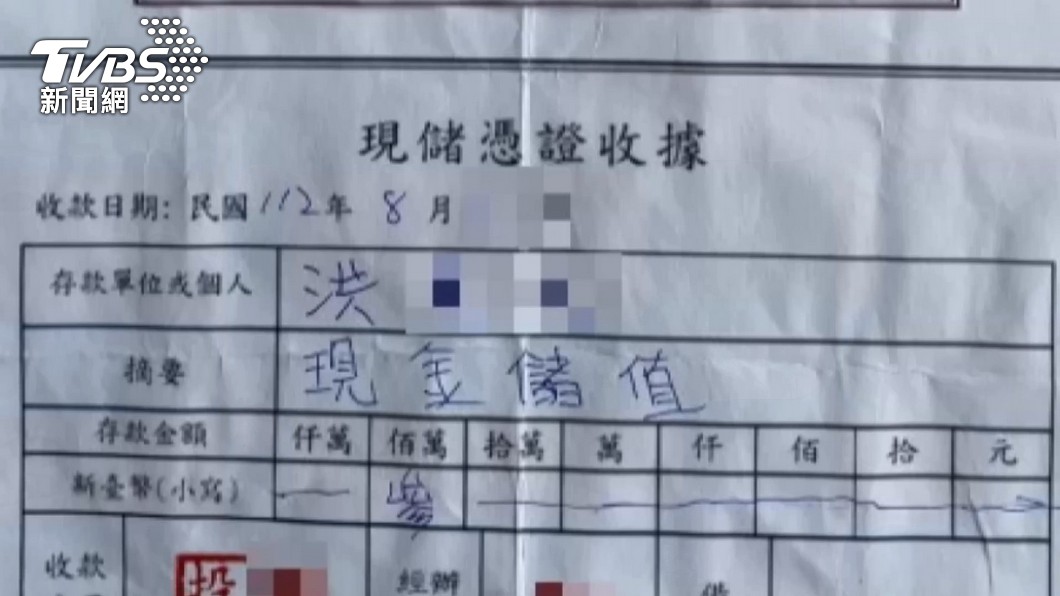 TVBS
新聞網
現儲憑證收據
收款日期：民國112年 8月
存款單位或個人 洪
摘要 現金儲值
存款金額 仟萬 佰萬 拾萬 萬 仟 佰 拾 元
新臺幣(小寫) 參
收款 投 經辦 備